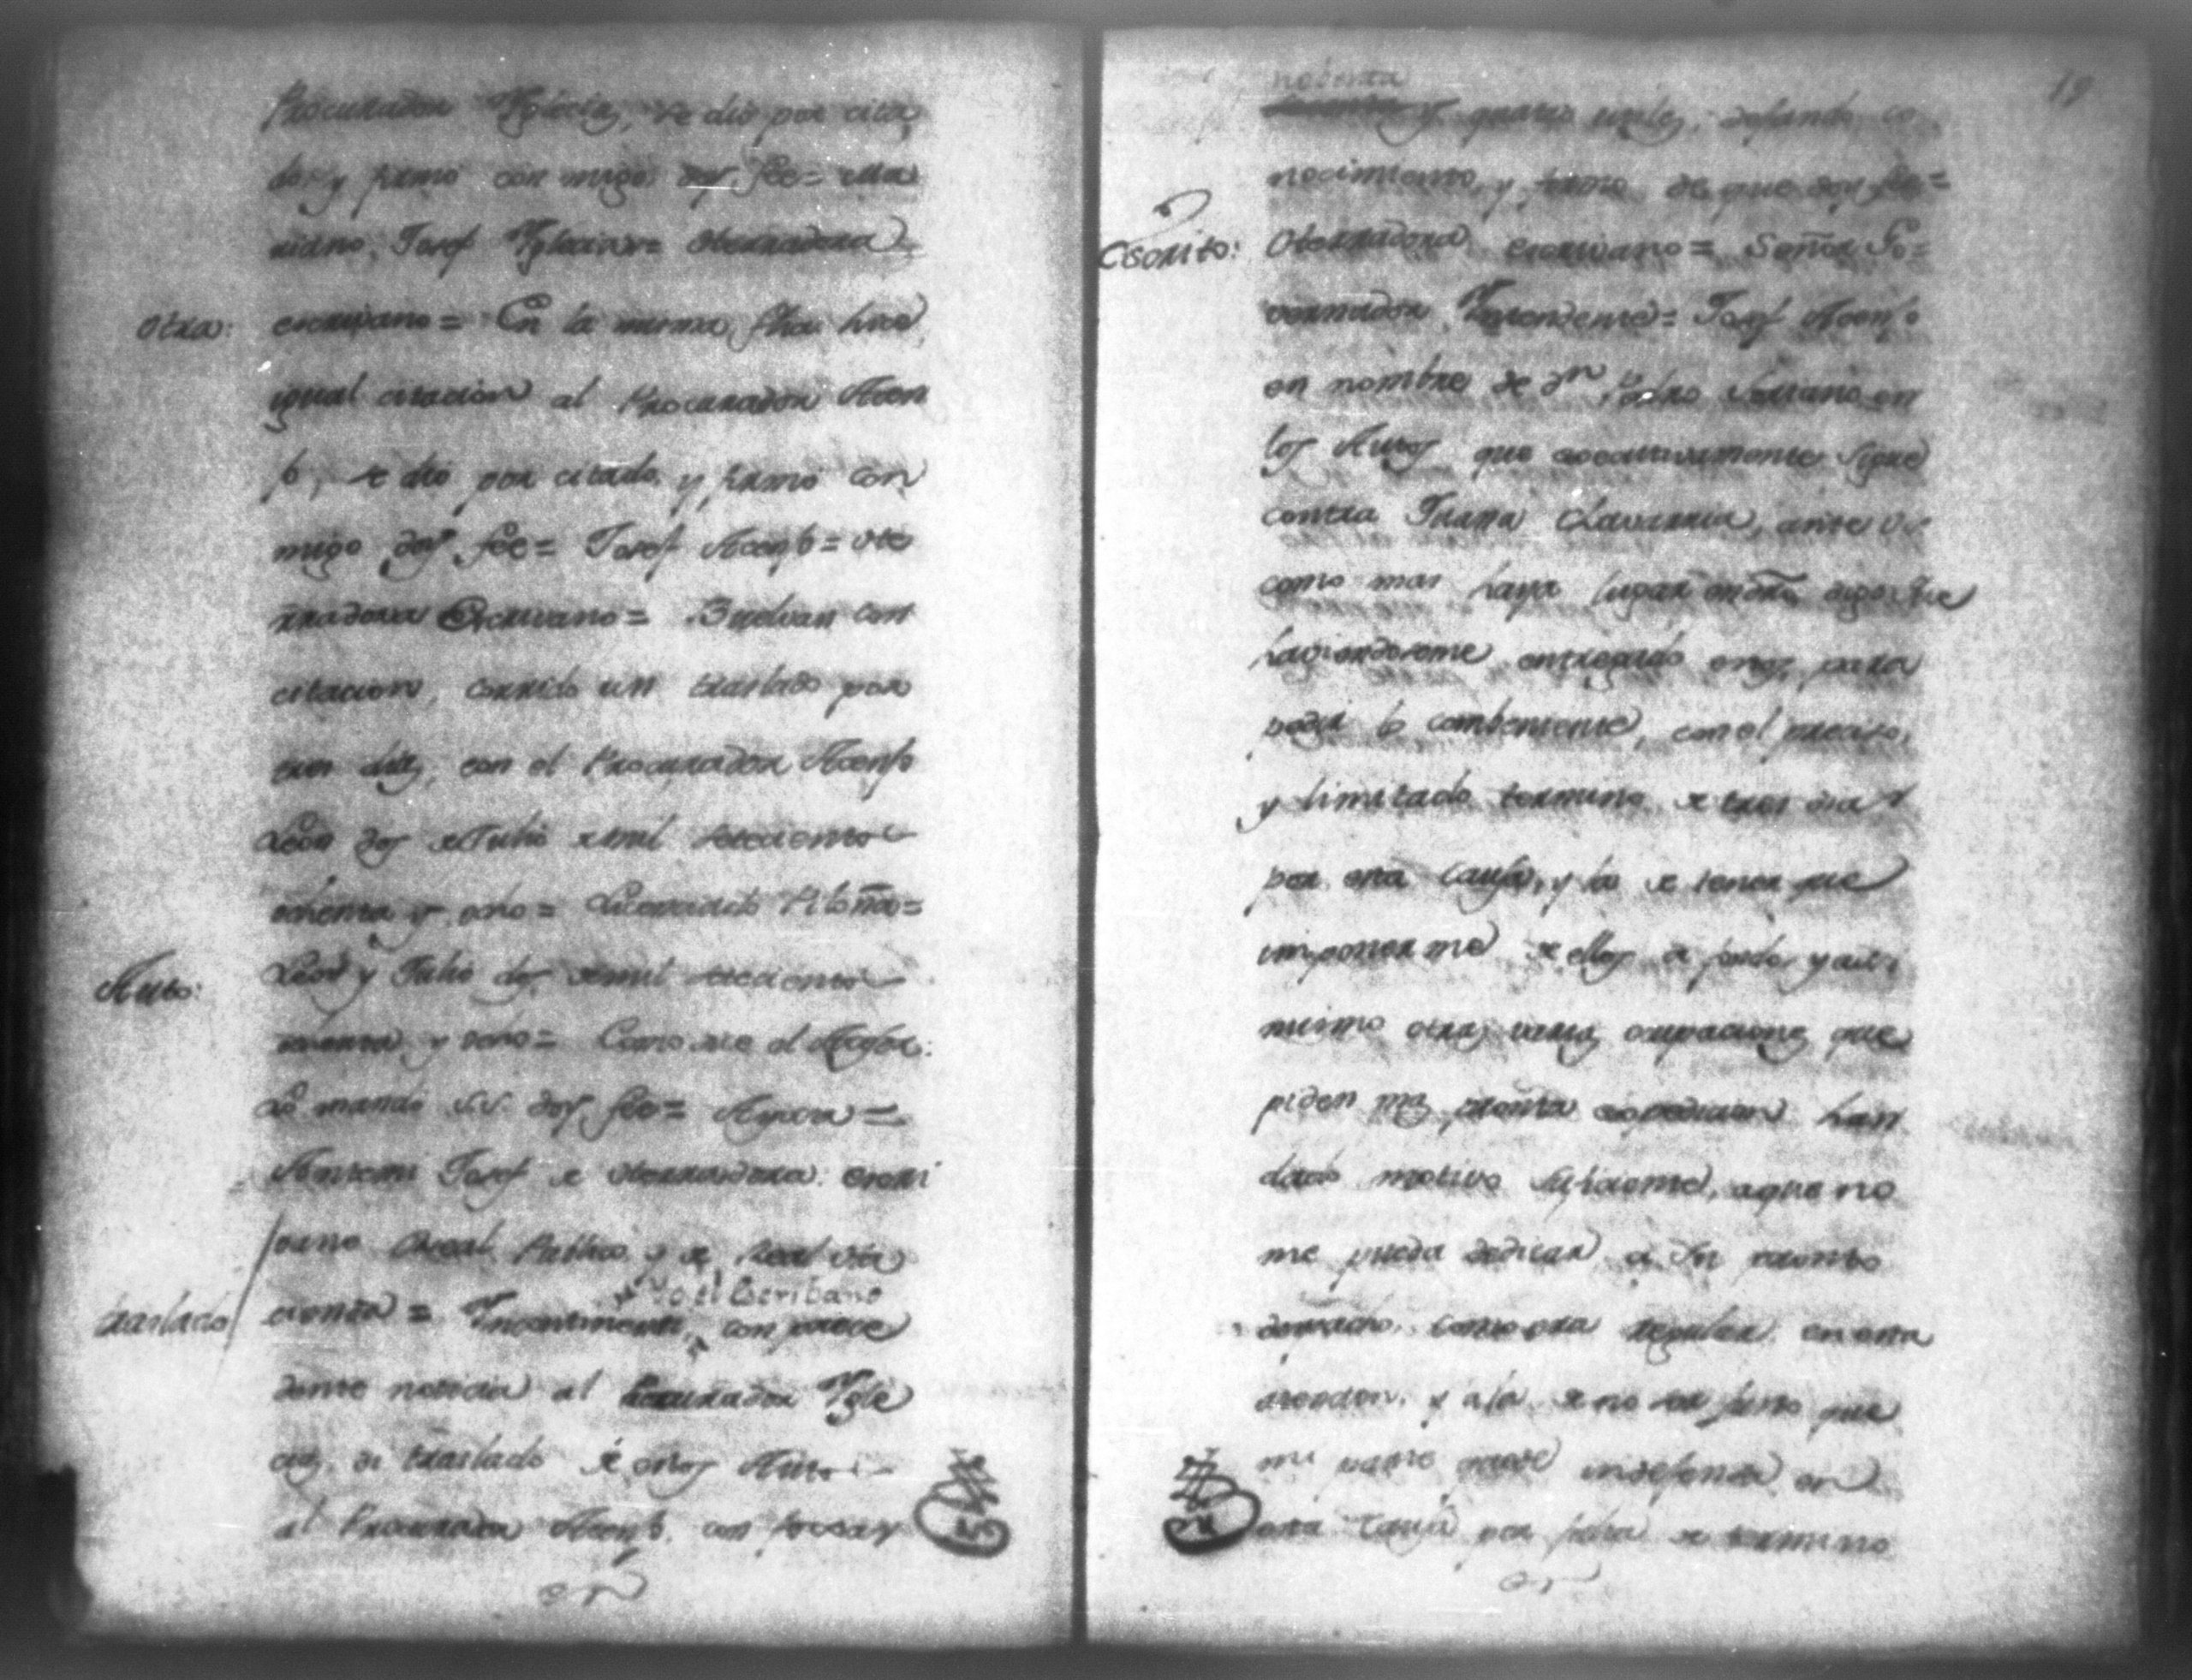 Procurador Yglecias, se dio por cita
do, y firmo con migo doy fee= Ma
riano, Josef Yglecias= Oterradora=
Otra: escrivano= En la misma fha hice
igual citacion al Procurador Acen
jo, se dio por citado, y firmo con
migo doy fee= Josef Acenjo= Ote
rradora Escrivano= Buelvan con
citacion, corrido un traslado por
tres dias, con el Procurador Acenjo
Leon dos de Julio de mil setecientos
ochenta y ocho= Licenciado Piloña=
Auto: Leon y Julio dos de mil setecientos
ochenta, y ocho= Como dice el Asesor:
Lo mando S.S. doy fee= Ayura=
Antemi Josef de Oterradora: escri
vano Real Publico y de Real Ha
Yo el Escribano
traslado cienda= Yncontinenti, con prece
dente noticia al Procurador Ygle
cias, di traslado de estos Autos
al Procurador Acenjo, con fojas
19
nobenta
y quatro utiles, dejando co
nocimiento, y firmo de que doy fee=
Escrito: Oterradora escrivano= Señor Go=
vernador Yntendente= Josef Acenjo
en nombre de Dn Pedro Serrano en
los Autos que executivamente sigue
contra Juana Chavarria, ante VS
como mas haya lugar en dro digo: Que
haviendoseme entregado estos para
pedir lo combeniente, con el preciso,
y limitado termino de tres dias
por esta causa, y la de tener que
imponerme de ellos a fondo, y asi
mismo otras varias ocupaciones que
piden mas pronta expedicion han
dado motivo suficiente, a que no
me pueda dedicar a su pronto
despacho, como era regular en esta
atencion, y a la de no ser justo que
mi parte quede indefensa en
esta causa por falta de termino